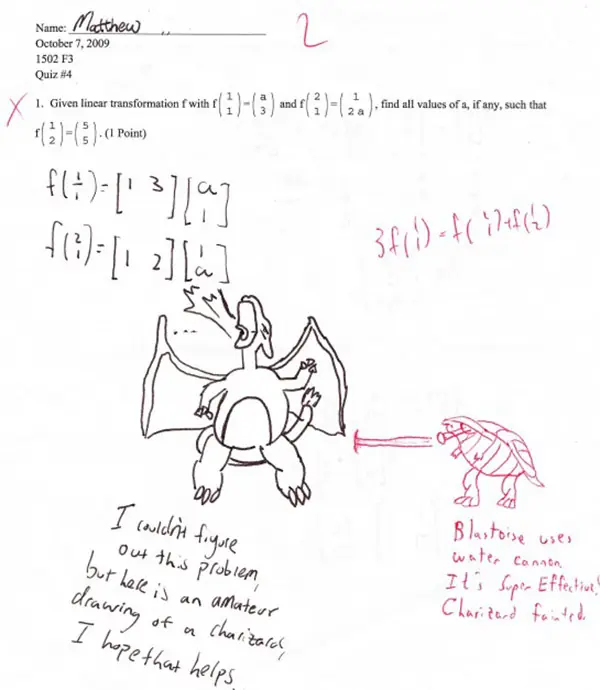 Name: Matthew
2
October 7, 2009
1502 F3
Quiz #4
X 1. Given linear transformation f with f(1 1)=(a 3) and f(2 1)=(1 2a), find all values of a, if any, such that
f(1 2)=(5 5). (1 Point)
f(1 1)=[1 3][a 1]
f(2 1)=[1 2][1 a]
3f(1 1)=f( )+f(1 2)
...
I couldn't figure
out this problem,
but here is an amateur
drawing of a charizard,
I hope that helps
Blastoise uses
water cannon
It's Super Effective!
Charizard fainted.